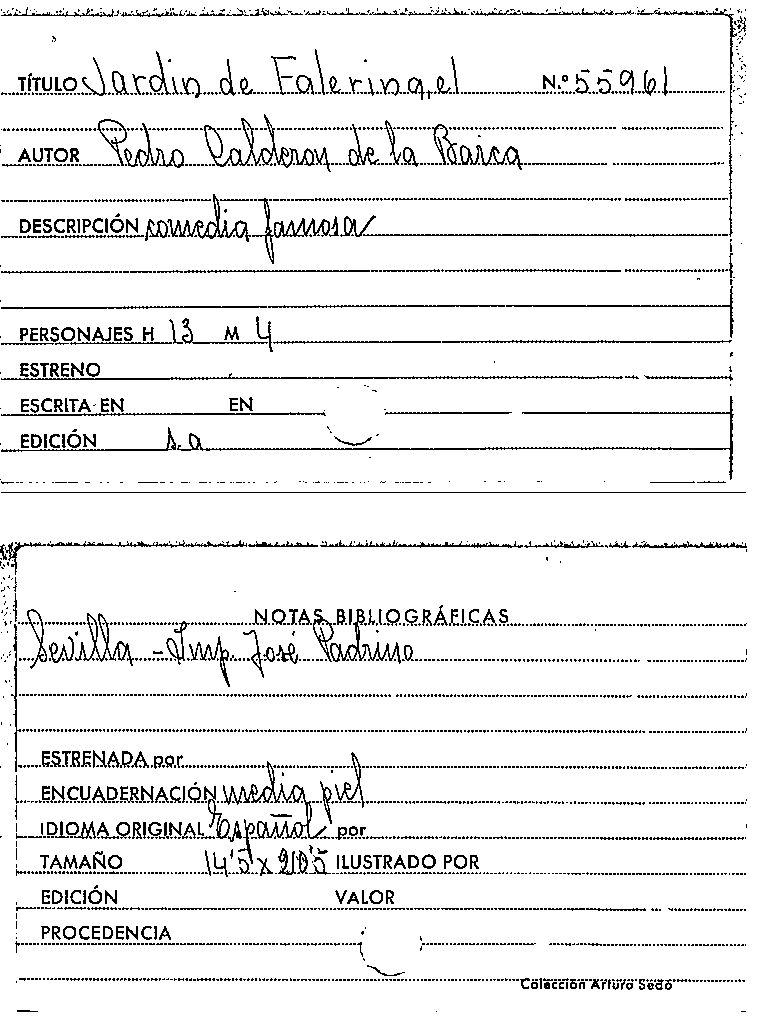 TÍTULO Jardin de Falerina, el N.º 55961
AUTOR Pedro Calderon de la Barca
DESCRIPCIÓN comedia famosa
PERSONAJES H 13 M 4
ESTRENO
ESCRITA EN EN
EDICIÓN s.a
NOTAS BIBLIOGRÁFICAS
Sevilla - Imp. José Padrino
ESTRENADA por
ENCUADERNACIÓN media piel
IDIOMA ORIGINAL Español por
TAMAÑO 14'5 x 20'5 ILUSTRADO POR
EDICIÓN VALOR
PROCEDENCIA
Colección Arturo Sedó